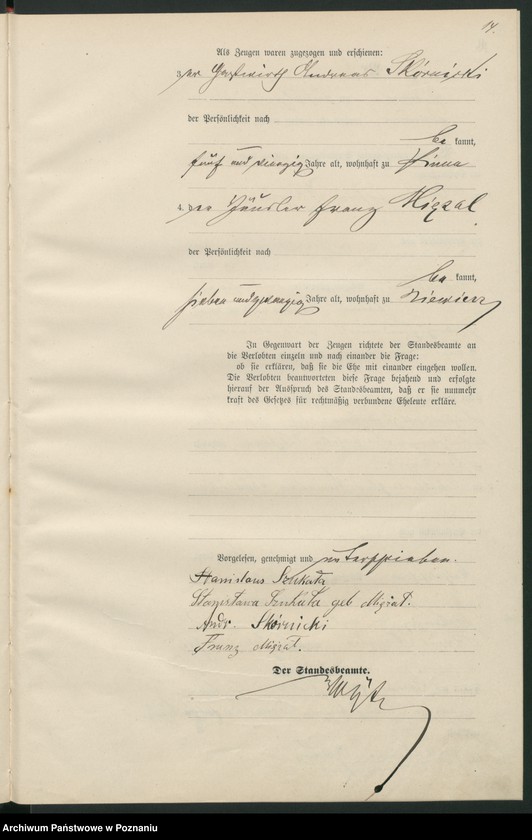 14.
Als Zeugen waren zugezogen und erschienen:
3. der Gastwirth Andreas Skórnicki
der Persönlichkeit nach
be kannt,
fünf und vierzig Jahre alt, wohnhaft zu Pinne
4. der Häusler Franz Migzal
der Persönlichkeit nach
be kannt,
sieben und zwanzig Jahre alt, wohnhaft zu
In Gegenwart der Zeugen richtete der Standesbeamte an
die Verlobten einzeln und nach einander die Frage:
ob sie erklären, daß sie die Ehe mit einander eingehen wollen.
Die Verlobten beantworteten diese Frage bejahend und erfolgte
hierauf der Ausspruch des Standesbeamten, daß er sie nunmehr
kraft des Gesetzes für rechtmäßig verbundene Eheleute erkläre.
Vorgelesen, genehmigt und unterschrieben.
Stanislaus Szukała
Stanisława Szukała geb Migzał.
Andr. Skórnicki
Franz Migzał.
Der Standesbeamte.
Archiwum Państwowe w Poznaniu